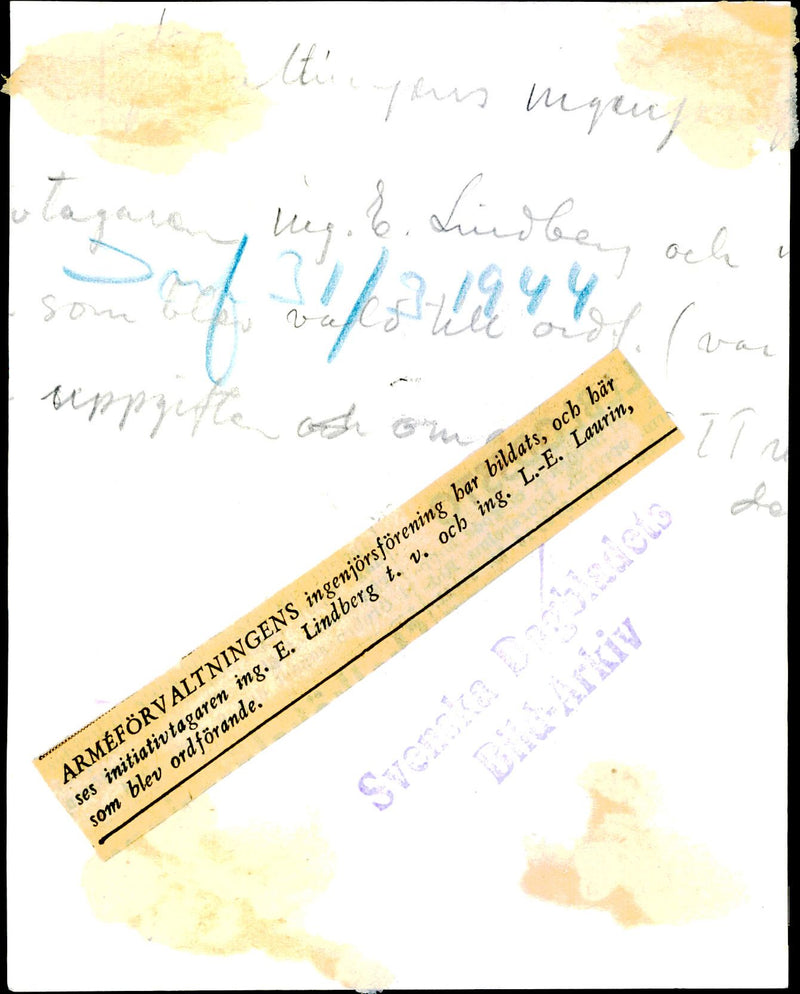 ltningens ingenj
vtagaren ing. E. Lindberg och
31/3 1944
som blev vald till ordf. (var
uppgiften och om TT
ARMÉFÖRVALTNINGENS ingenjörsförening har bildats, och här
ses initiativtagaren ing. E. Lindberg t. v. och ing. L.-E. Laurin,
som blev ordförande.
Svenska Dagbladets
Bild-Arkiv